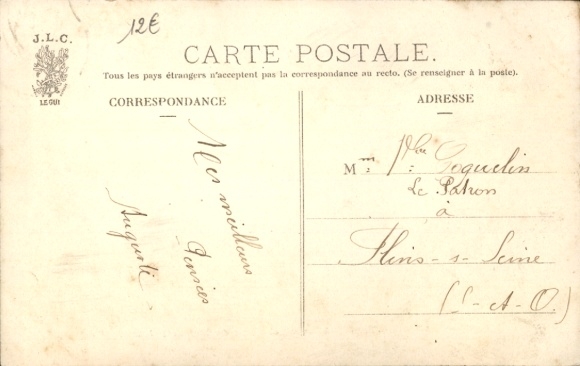 12€
J.L.C.
LE GUI
CARTE POSTALE.
Tous les pays étrangers n'acceptent pas la correspondance au recto. (Se renseigner à la poste).
CORRESPONDANCE
Mes meilleurs
Pensées
Auguste
ADRESSE
M Coquelin
Le Patron
à
Flins-s-Seine
(S-&-O.)